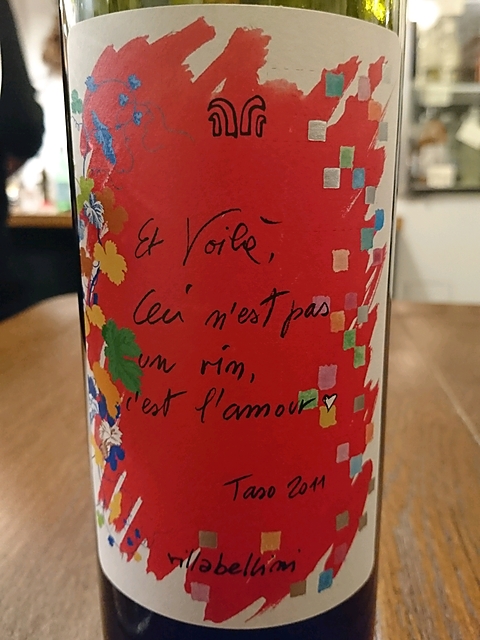 Et Voilà,
Ceci n'est pas
un vin,
c'est l'amour
Taso 2011
villabellini